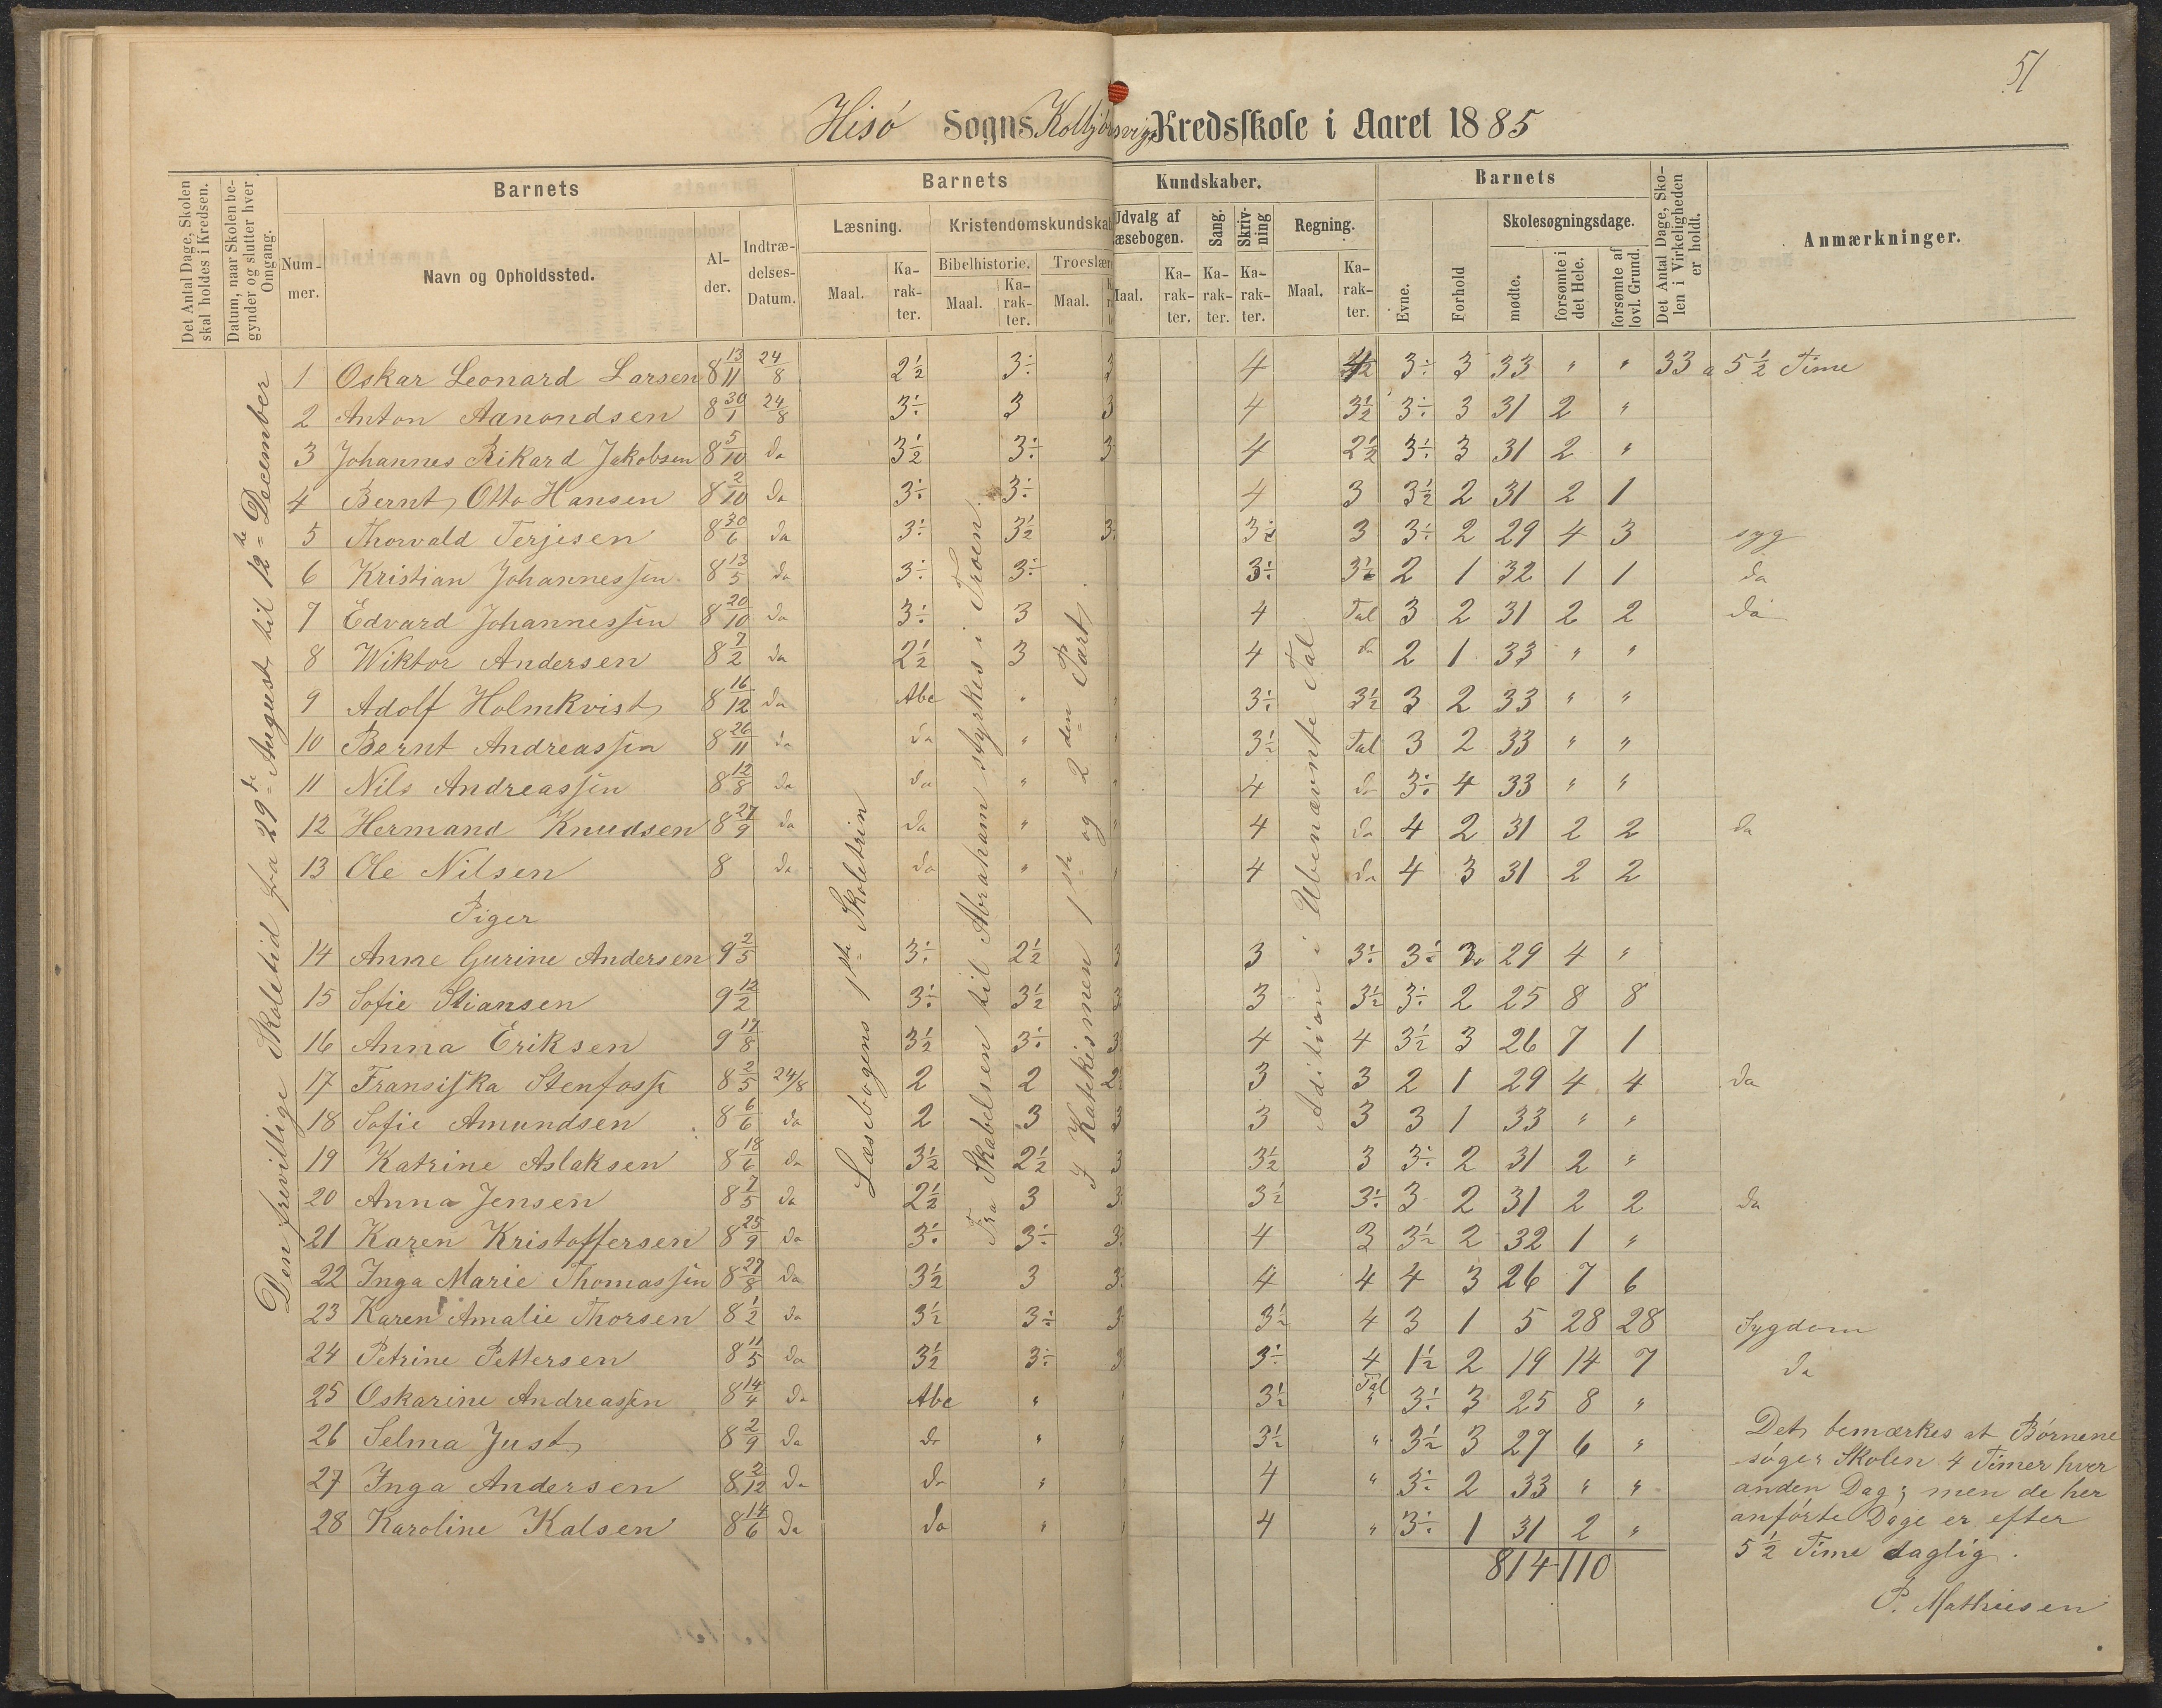 51
Hisö Sogns Kolbjörnsvigs Kredsskole i Aaret 1885
Det Antal Dage, Skolen skal holdes i Kredsen.
Datum, naar Skolen begynder og slutter hver Omgang.
Barnets
Nummer.
Navn og Opholdssted.
Alder.
Indtrædelses-Datum.
Barnets Kundskaber.
Læsning.
Maal. Karakter.
Kristendomskundskab
Bibelhistorie. Maal. Karakter.
Troeslære Maal.
Udvalg af Læsebogen. Maal. Karakter.
Sang. Karakter.
Skrivning Karakter.
Regning. Maal. Karakter.
Barnets
Evne. Forhold
Skolesøgningsdage.
mødte. forsømte i det Hele. forsømte af lovl. Grund.
Det Antal Dage, Skolen i Virkeligheden er holdt.
Anmærkninger.
Den frivillige Skoletid fra 29de August til 12te December
Læsebogens 1ste Skoletrin
Fra Skabelsen til Abraham styrkes i Troen.
I Katekismen 1ste og 2den Part.
Adition i Ubenævnte Tal
1 Oskar Leonard Larsen 8 13/11 24/8 2½ 3÷ 3 4 3÷ 3 33 " " 33 a 5½ Time
2 Anton Aanondsen 8 30/1 24/8 3÷ 3 3 4 3½ 3÷ 3 31 2 "
3 Johannes Rikard Jakobsen 8 5/10 da 3½ 3÷ 3 4 2½ 3÷ 3 31 2 "
4 Bernt Otto Hansen 8 2/10 da 3÷ 3÷ 4 3 3½ 2 31 2 1
5 Thorvald Terjesen 8 30/6 da 3÷ 3½ 3÷ 3½ 3 3÷ 2 29 4 3 syg
6 Kristian Johannessen 8 13/5 da 3÷ 3÷ 3÷ 3½ 2 1 32 1 1 da
7 Edvard Johannessen 8 20/10 da 3÷ 3 4 Tal 3 2 31 2 2 da
8 Wiktor Andersen 8 7/2 da 2½ 3 4 da 2 1 33 " "
9 Adolf Holmkvist 8 16/12 da Abc " " 3÷ 3½ 3 2 33 " "
10 Bernt Andreassen 8 26/11 da da " " 3½ Tal 3 2 33 " "
11 Nils Andreassen 8 12/8 da da " " 4 da 3÷ 4 33 " "
12 Hermand Knudsen 8 27/9 da da " " 4 da 4 2 31 2 2 da
13 Ole Nilsen 8 da da " " 4 da 4 3 31 2 2
Piger
14 Anne Gurine Andersen 9 2/5 3÷ 2½ 3 3 3÷ 3½ 3 29 4 "
15 Sofie Stiansen 9 12/2 3÷ 3½ 3 3 3½ 3÷ 2 25 8 8
16 Anna Eriksen 9 17/8 3½ 3÷ 3 4 4 3½ 3 26 7 1
17 Fransiska Stenfoss 8 2/5 24/8 2 2 2½ 3 3 2 1 29 4 4 da
18 Sofie Amundsen 8 6/6 da 2 3 3 3 3 3 1 33 " "
19 Katrine Aslaksen 8 18/6 da 3½ 2½ 3 3½ 3 3÷ 2 31 2 "
20 Anna Jensen 8 7/5 da 2½ 3 3÷ 3½ 3÷ 3 2 31 2 2 da
21 Karen Kristoffersen 8 25/9 da 3÷ 3÷ 3÷ 4 3 3½ 2 32 1 "
22 Inga Marie Thomassen 8 27/8 da 3½ 3 3÷ 4 4 4 3 26 7 6
23 Karen Amalie Thorsen 8 1/2 da 3½ 3÷ 3 3½ 4 3 1 5 28 28 Sygdom
24 Petrine Pettersen 8 11/5 da 3½ 3÷ 3 3÷ 4 1½ 2 19 14 7 da
25 Oskarine Andreassen 8 14/4 da Abc " " 3½ Tal 3÷ 3 25 8 "
26 Selma Just 8 2/9 da da " " 3½ " 3½ 3 27 6 "
27 Inga Andersen 8 2/12 da da " " 4 " 3÷ 2 33 " "
28 Karoline Kalsen 8 14/6 da da " " 4 " 3÷ 1 31 2 "
814 110
Det bemærkes at Börnene
söger Skolen 4 Timer hver
anden Dag; men de her
anförte Dage er efter
5½ Time daglig.
P. Mathiesen